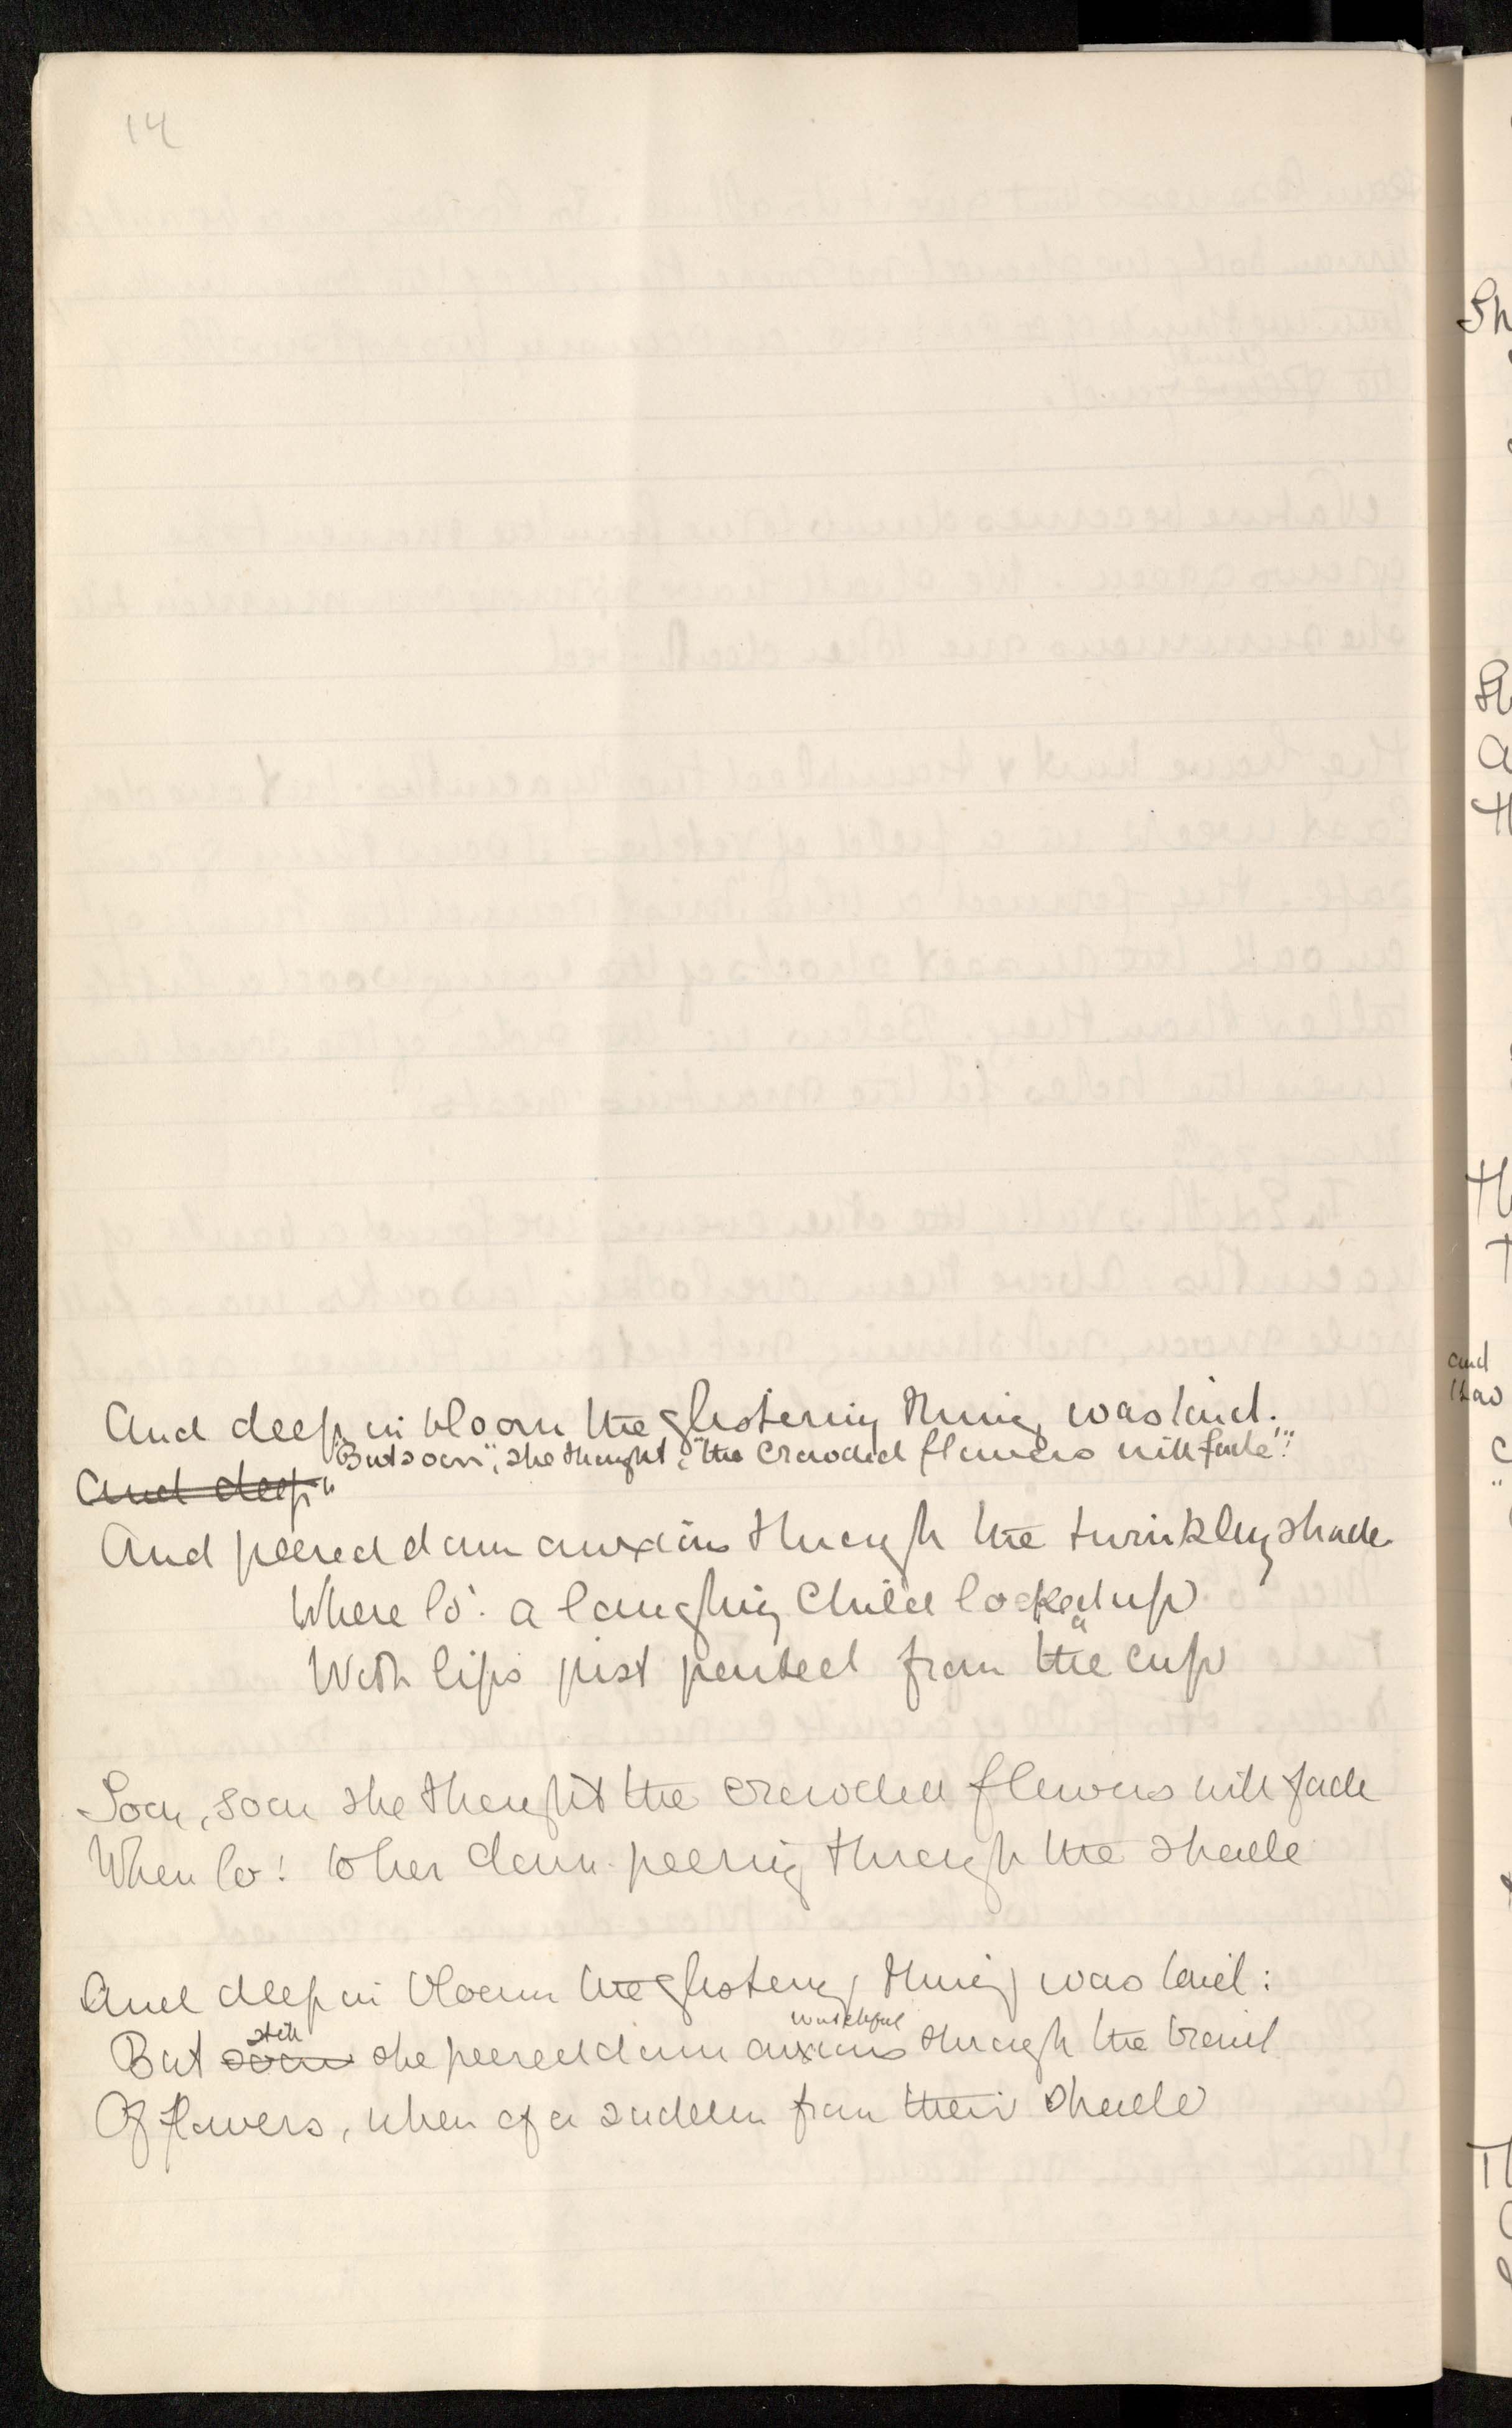 14
And deep in bloom the glistening thing was laid.
"But soon", she thought, "the crowded flowers will fade"!
And deep
And peered down anxious through the twinkling shade
Where lo! a laughing child looked up
With lips just parted from the a cup
Soon, soon she thought the crowded flowers will fade
When lo! to her down-peering through the shade
And deep in bloom the glistening thing was laid:
still watchful
But soon she peered down anxious through the braid
Of flowers, when of a sudden from their shade